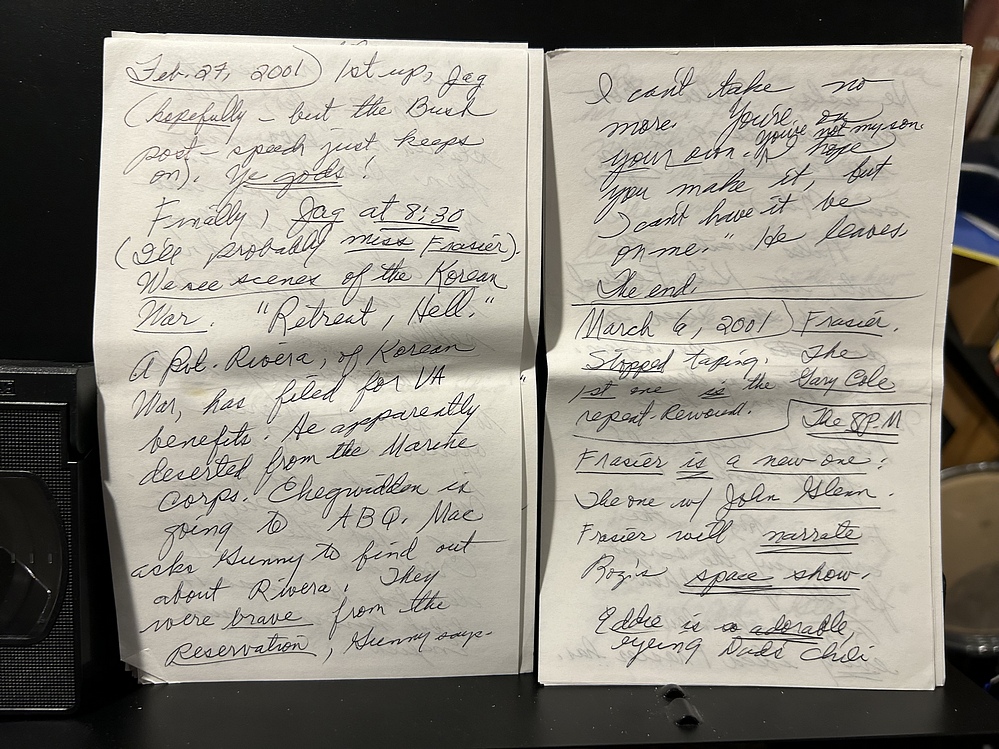 Feb. 27, 2001) 1st up, Jag
(hopefully - but the Bush
post-speech just keeps
on). Ye gods!
Finally, Jag at 8:30
(I'll probably miss Frasier).
We see scenes of the Korean
War. "Retreat, Hell."
A Pvt. Rivera, of Korean
War, has filed for VA
benefits. He apparently
deserted from the Marine
Corps. Chegwidden is
going to ABQ. Mac
asks Gunny to find out
about Rivera. They
were brave from the
Reservation, Gunny says-
I can't take no
more. You're on
your own. You're not my son. I hope
you make it, but
I can't have it be
on me." He leaves.
The end.
March 6, 2001) Frasier.
Stopped taping. The
1st one is the Gary Cole
repeat. Rewound. The 8 P.M
Frasier is a new one:
The one w/ John Glenn.
Frasier will narrate
Roz's space show.
Eddie is so adorable,
eyeing Dad's chili